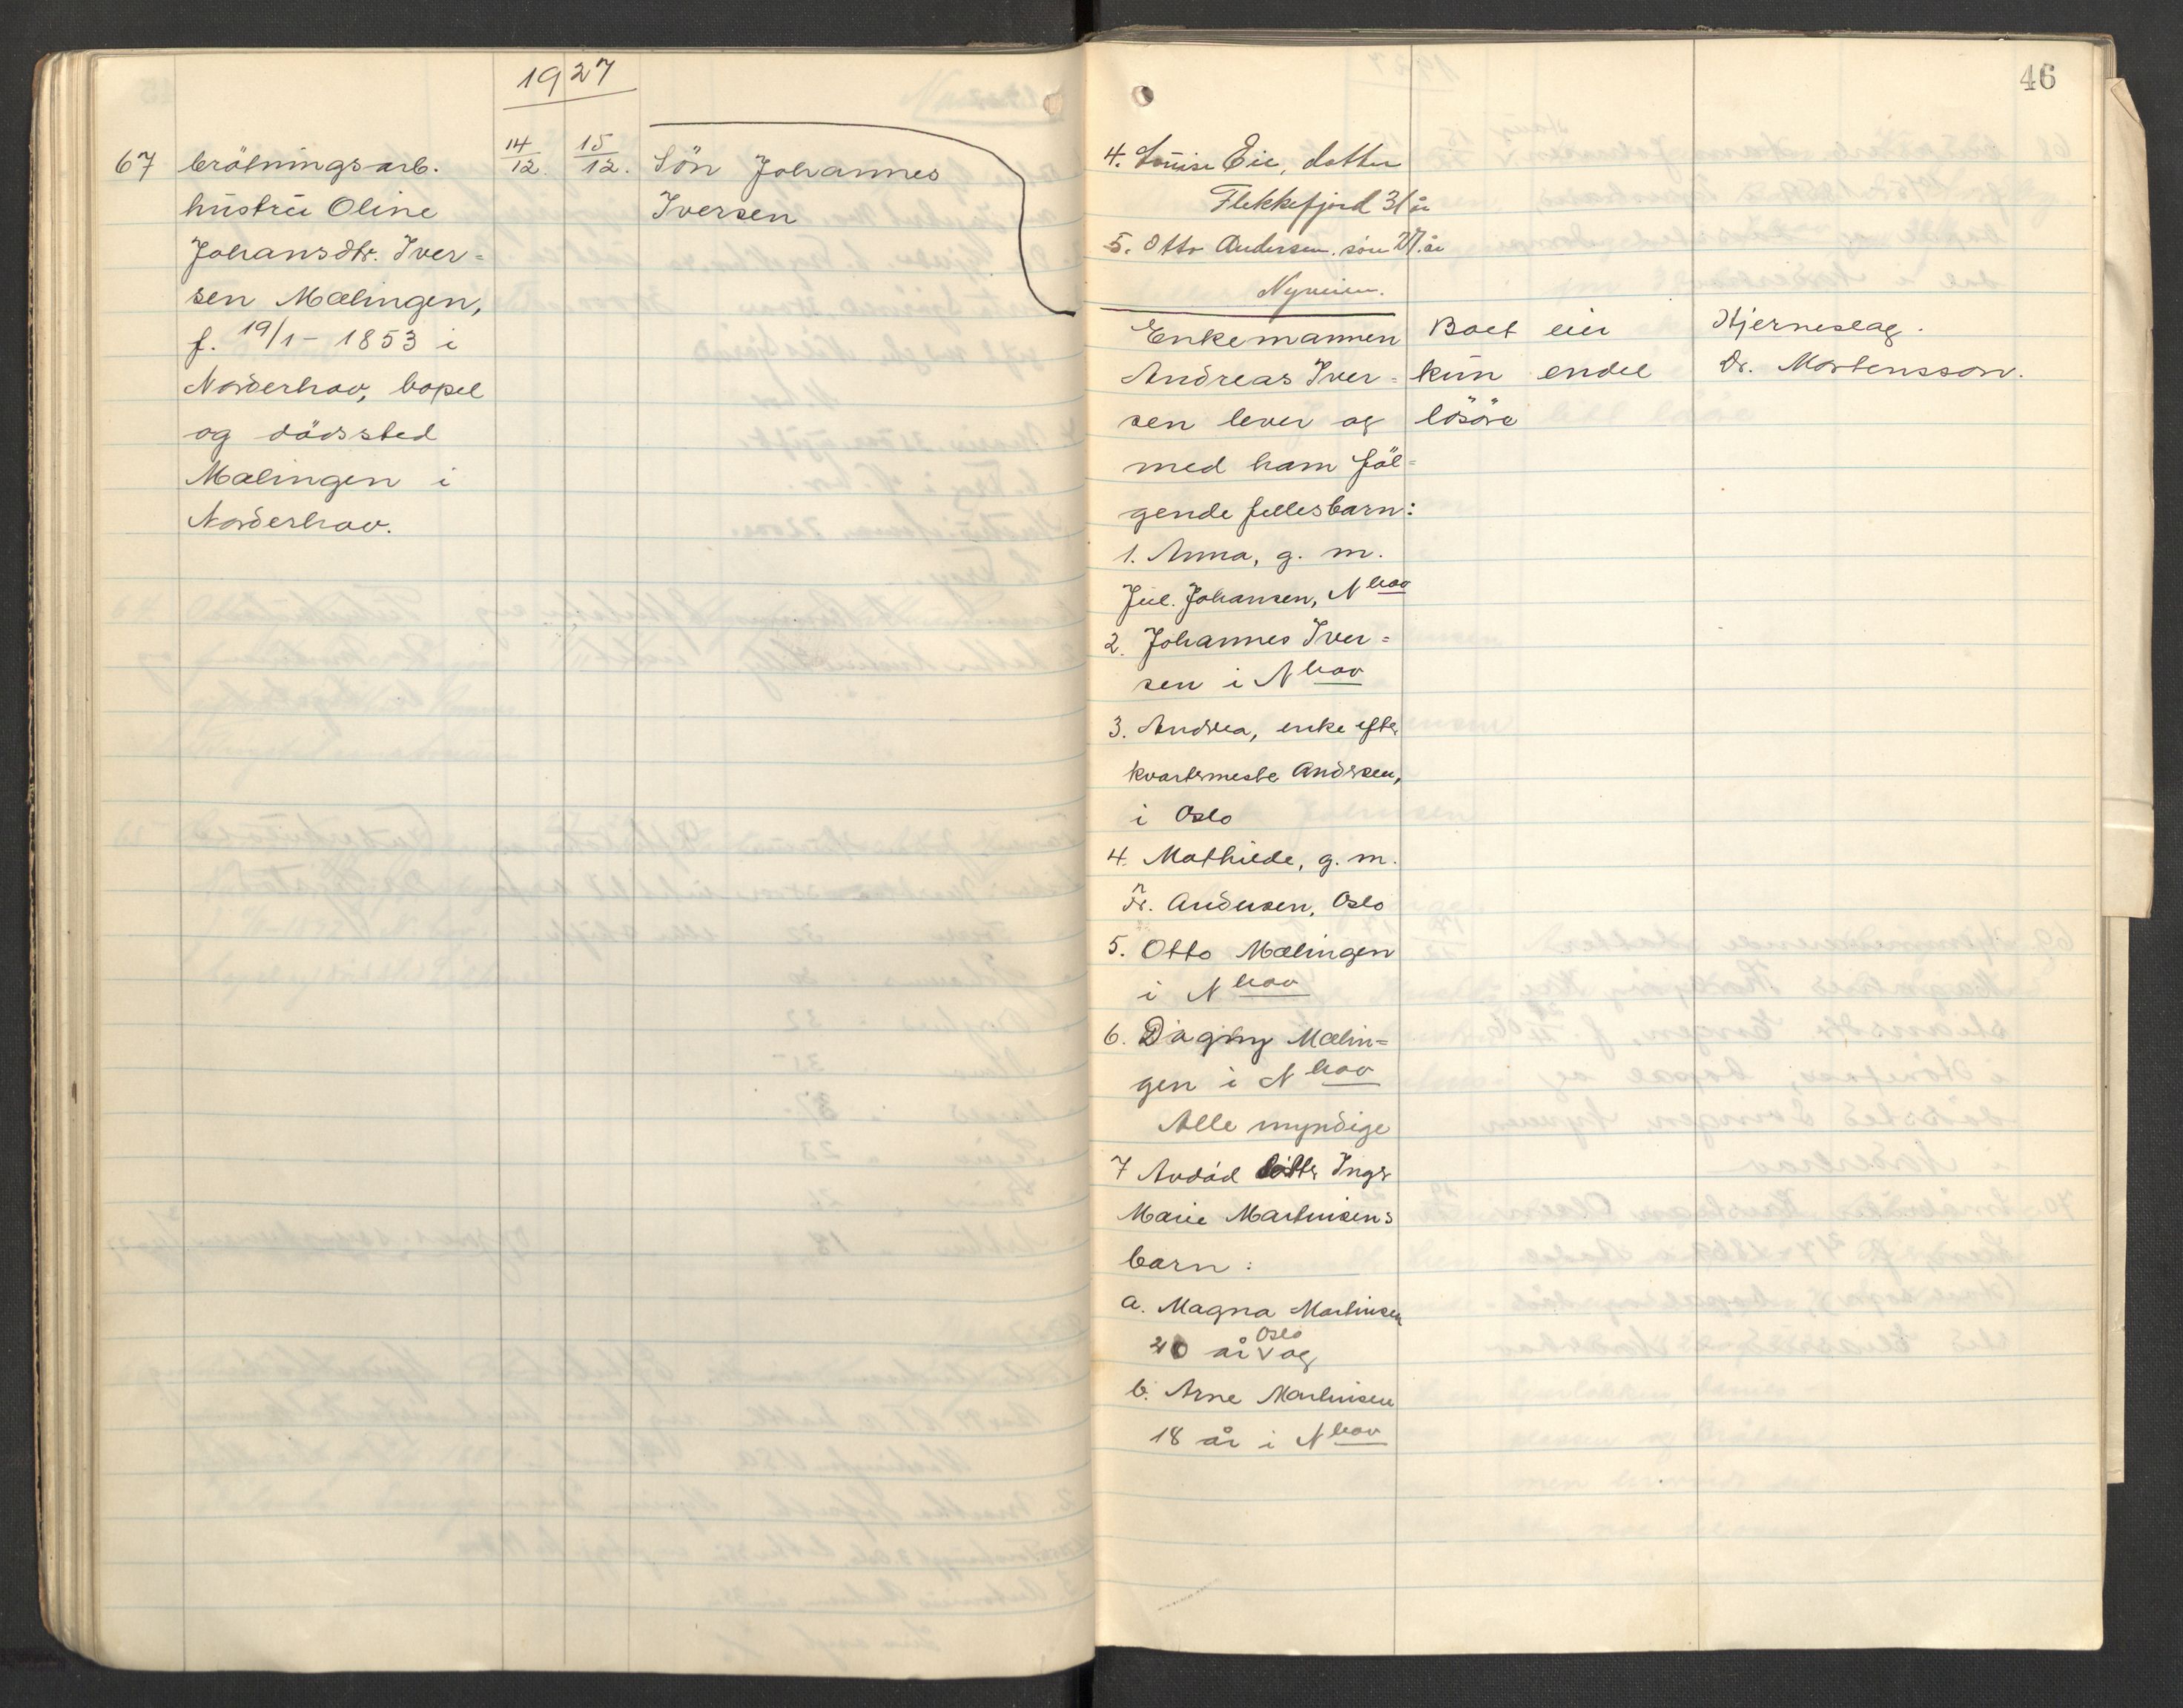 1927
67 brötningsarb.
hustru Oline
Johansdtr. Iver=
sen Mælingen,
f. 19/1 - 1853 i
Norderhov, bopel
og dödssted
Mælingen i
Norderhov.
14/12. 15/12.
Sön Johannes
Iversen
46
4. Louise Eie, datter
Flekkefjord 31 år
5. Otto Andersen. sön 27 år
Nyveien.
Enkemannen
Andreas Iver=
sen lever og
med ham föl=
gende fellesbarn:
1. Anna, g. m.
Jul. Johansen, Nhov
2. Johannes Iver=
sen i Nhov
3. Andrea, enke efter
kvartermester Andersen,
i Oslo
4. Mathilde, g. m.
Fr. Andersen, Oslo
5. Otto Mælingen
i Nhov
6. Dagny Mælin=
gen i Nhov
Alle myndige
7 Avdöd datter Inger
Marie Martinsens
barn:
a. Magna Martinsen
20 år Oslo og
b. Arne Martinsen
18 år i Nhov
Boet eier
kun endel
lösöre
Hjerneslag.
Dr. Mortensson.